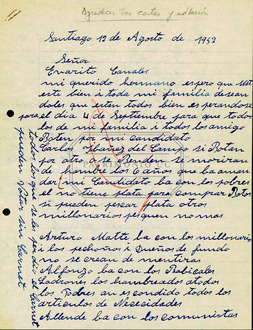 Agradecer tres cartas y adhesión
Santiago 12 de Agosto de 1952
Señor
Evaristo Canales
mi querido hermano espero que Ust
este bien i toda mi familia desean
doles que esten todos bien esperandose
para el dia 4 de Septiembre para que todos
los de mi familia i todos los amigo
Boten por mi candidato
Carlos Ibañez del Campo si Boten
por otro o se Benden se moriran
de hambre los 6 años que ba aman
dar mi Candidato ba con los pobres
no tiene plata para comprar Botos
si pueden pescar plata otros
millonarios no mas
Arturo Matte ba con los millonario
i los sechones i Dueños de fundo
no se crean de mentiras
Alfonzo ba con los Radicales
Ladrones los hambreados atodos
los an escondido todo los
articulos de Necesidades
Allende ba con los comunistas
todos los que se les perdio el Carnet
pueden Votar sin Carnet